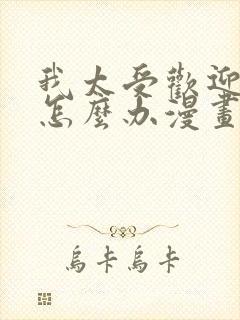 我太受歡迎
怎麼办漫畫
烏卡烏卡